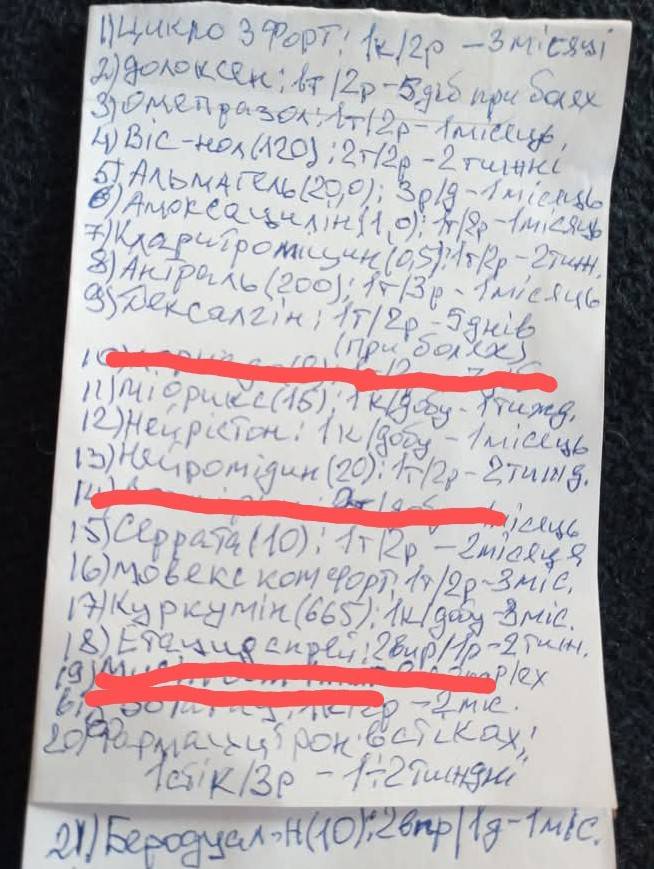 1) Цикло 3 Форт: 1к/2р – 3 місяці
2) Долоксен: 1т/2р – 5 діб при болях
3) Омепразол: 1т/2р – 1 місяць,
4) Віс-нол (120): 2т/2р – 2 тижні
5) Альмагель (20,0): 3р/д – 1 місяць
6) Амоксацилін (1,0): 1т/2р – 1 місяць
7) Кларитромицин (0,5): 1т/2р – 2 тиж.
8) Антраль (200): 1т/3р – 1 місяць
9) Дексалгін: 1т/2р – 5 днів
(при болях)
10)
11) Мідрикс (15): 1к/добу – 1 тижд.
12) Нейрістон: 1к/добу – 1 місяць
13) Нейромідин (20): 1т/2р – 2 тижд.
14) місяць
15) Серрата (10): 1т/2р – 2 місяця
16) Мовекс комфорт: 1т/2р – 3 міс.
17) Куркумін (665): 1к/добу – 3 міс.
18) Етацид спрей: 2впр/1р – 2 тиж.
19)
1к/2р – 2 міс.
20) Фармацитрон в стіках:
1 стік/3р – 1÷2 тиждні
21) Беродуал-Н (10): 2впр/1д – 1 міс.